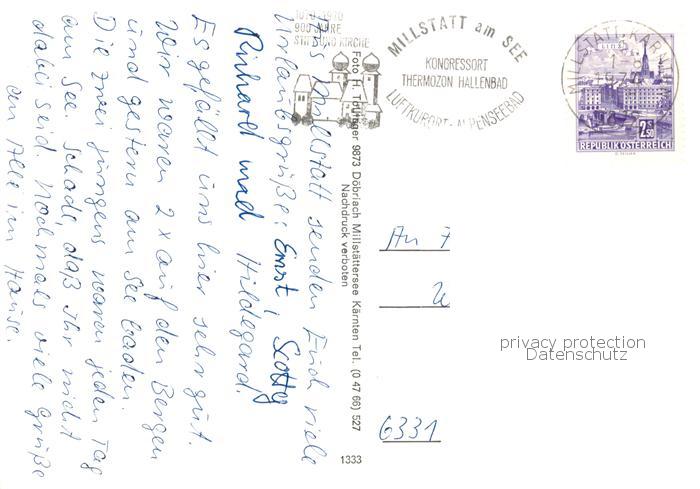 Aus Millstatt senden Euch viele
Urlaubsgrüße: Ernst, Scotty
Rinhard und Hildegard.
Es gefällt uns hier sehr gut.
Wir waren 2x auf den Bergen
und gestern am See baden.
Die zwei Jungens waren jeden Tag
am See. Schade, daß Ihr nicht
dabei seid. Nochmals viele Grüße
an Alle im Hause.
Foto H. 9873 Döbriach Millstättersee Kärnten Tel. (0 47 66) 527
Nachdruck verboten
1333
1070-1970
900 JAHRE
STIFT UND KIRCHE
MILLSTATT am SEE
KONGRESSORT
THERMOZON HALLENBAD
LUFTKURORT-ALPENSEEBAD
MILLSTATT, KÄRNT
LINZ
2.50
REPUBLIK ÖSTERREICH
An
6331
privacy protection
Datenschutz